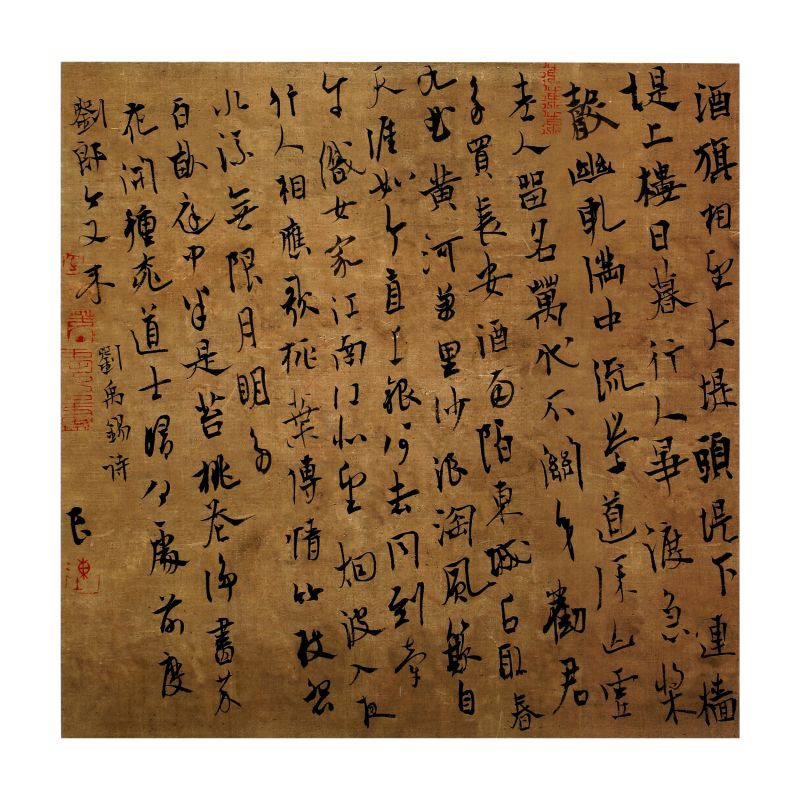 酒旗相望大堤頭堤下連檣
堤上樓日暮行人畢渡急槳
聲幽軋滿中流學道深山虛
老人留名萬代不關身勸君
多買長安酒南陌東城占取春
九曲黃河萬里沙浪淘風簸自
天涯如今直上銀河去同到牽
牛織女家江南江北望烟波入夜
行人相應歌桃葉傳情竹枝怨
水流無限月明多
百畝庭中半是苔桃花淨盡菜
花開種桃道士歸何處前度
劉郎今又来
劉禹錫詩